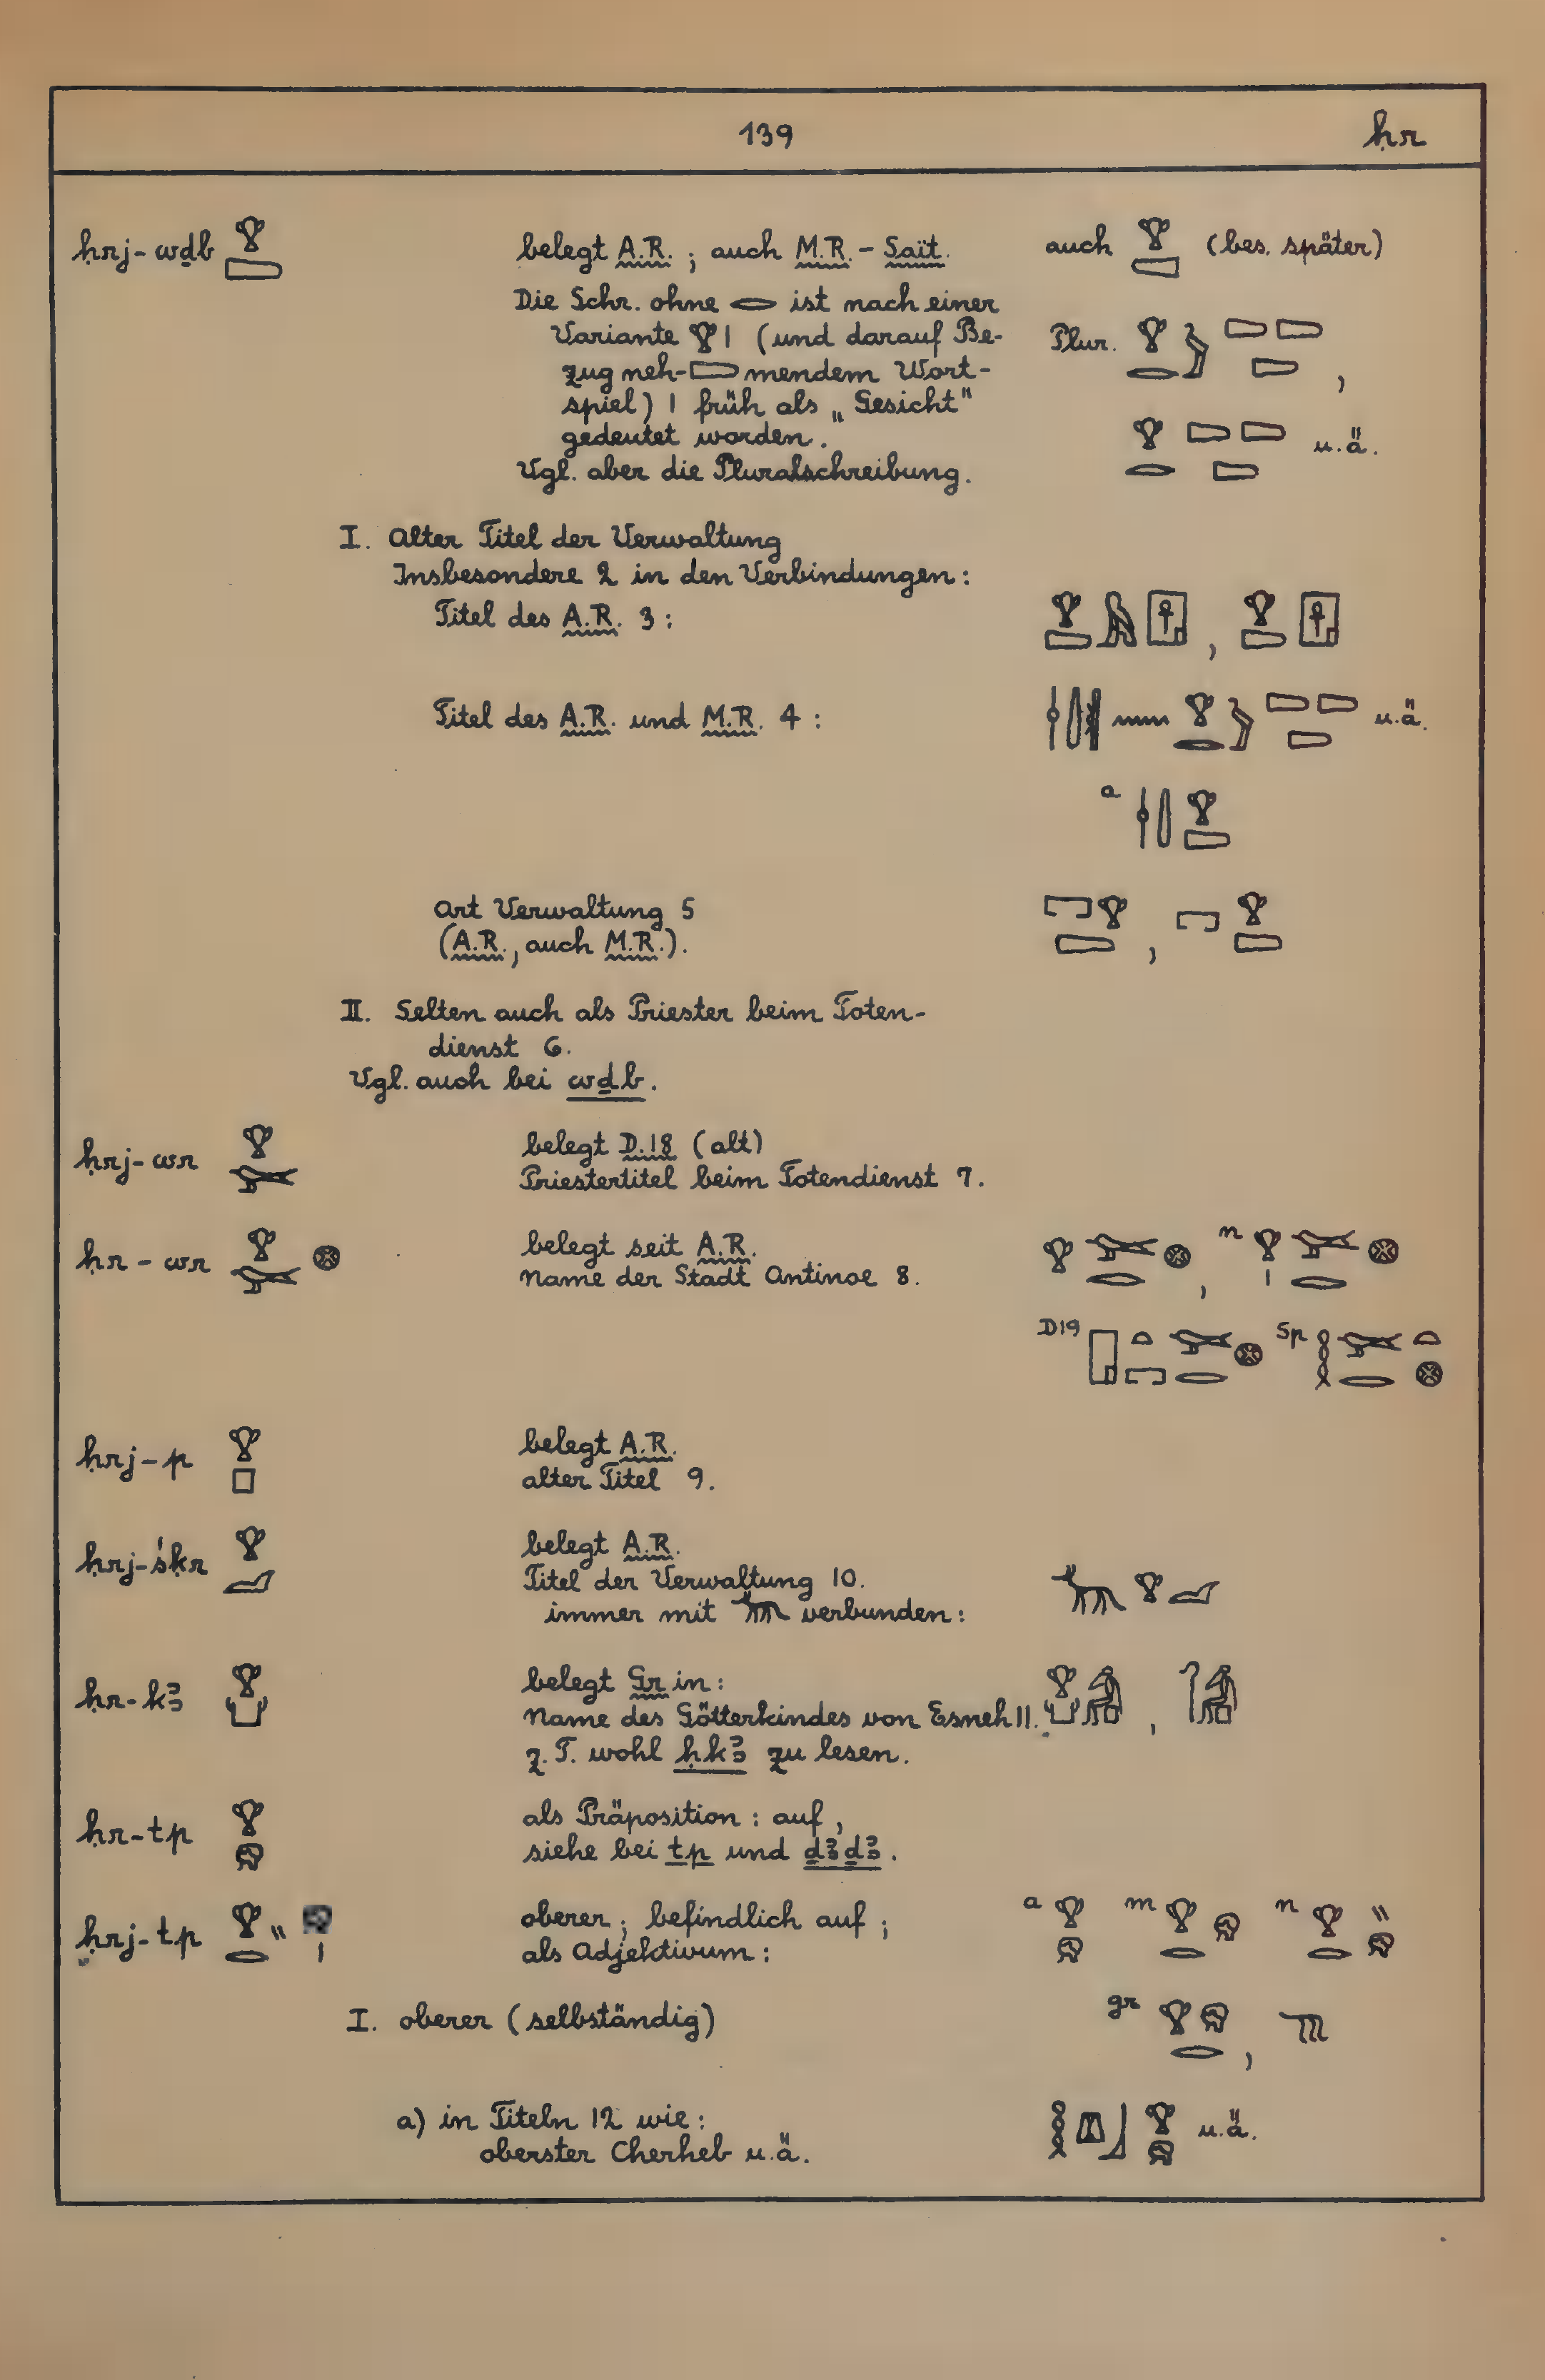 139 ḥr
ḥrj-wḏb belegt A.R.; auch M.R. - Saït. auch (bes. später)
Die Schr. ohne ist nach einer
Variante (und darauf Be- Plur.
zug neh- mendem Wort- ,
spiel) früh als „Gesicht"
gedeutet worden. u.ä.
Vgl. aber die Pluralschreibung.
I. Alter Titel der Verwaltung
Insbesondere 2 in den Verbindungen:
Titel des A.R. 3: ,
Titel des A.R. und M.R. 4: u.ä.
a
Art Verwaltung 5
(A.R., auch M.R.). ,
II. Selten auch als Priester beim Toten-
dienst 6.
Vgl. auch bei wḏb.
ḥrj-wr belegt D.18 (alt)
Priestertitel beim Totendienst 7.
ḥr-wr belegt seit A.R. , n
Name der Stadt Antinoe 8.
D19 Sp
ḥrj-p belegt A.R.
alter Titel 9.
ḥrj-śḳr belegt A.R.
Titel der Verwaltung 10.
immer mit verbunden:
ḥr-kꜣ belegt Gr in:
Name des Götterkindes von Esneh 11. ,
z.T. wohl ḥkꜣ zu lesen.
ḥr-tp als Präposition: auf,
siehe bei tp und ḏꜣḏꜣ.
ḥrj-tp oberer; befindlich auf; a m n
als Adjektivum:
I. oberer (selbständig) gr ,
a) in Titeln 12 wie: u.ä.
oberster Cherheb u.ä.